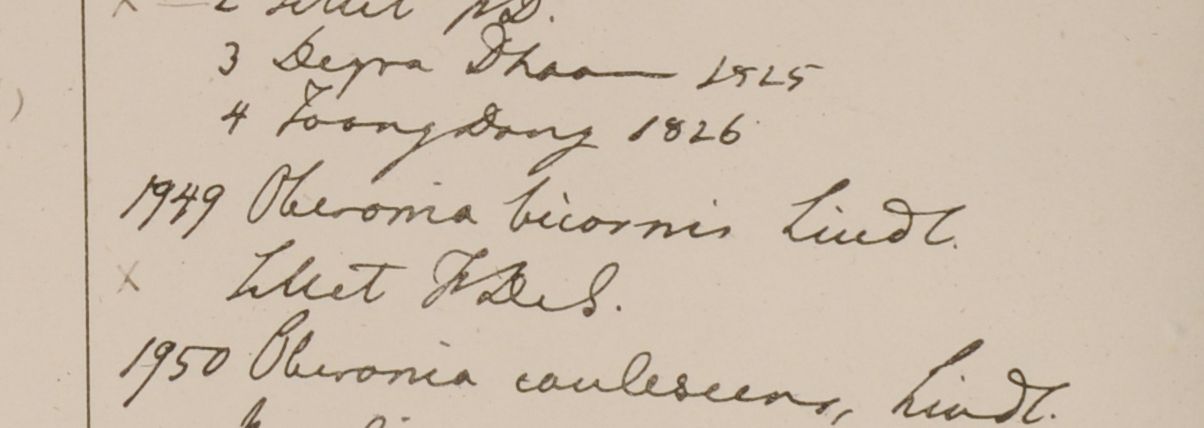 2 Sillet
3 Deyra Dhoon 1825
4 Toong Dong 1826
1949 Oberonia bicornis Lindl.
x Sillet
1950 Oberonia caulescens, Lindl.